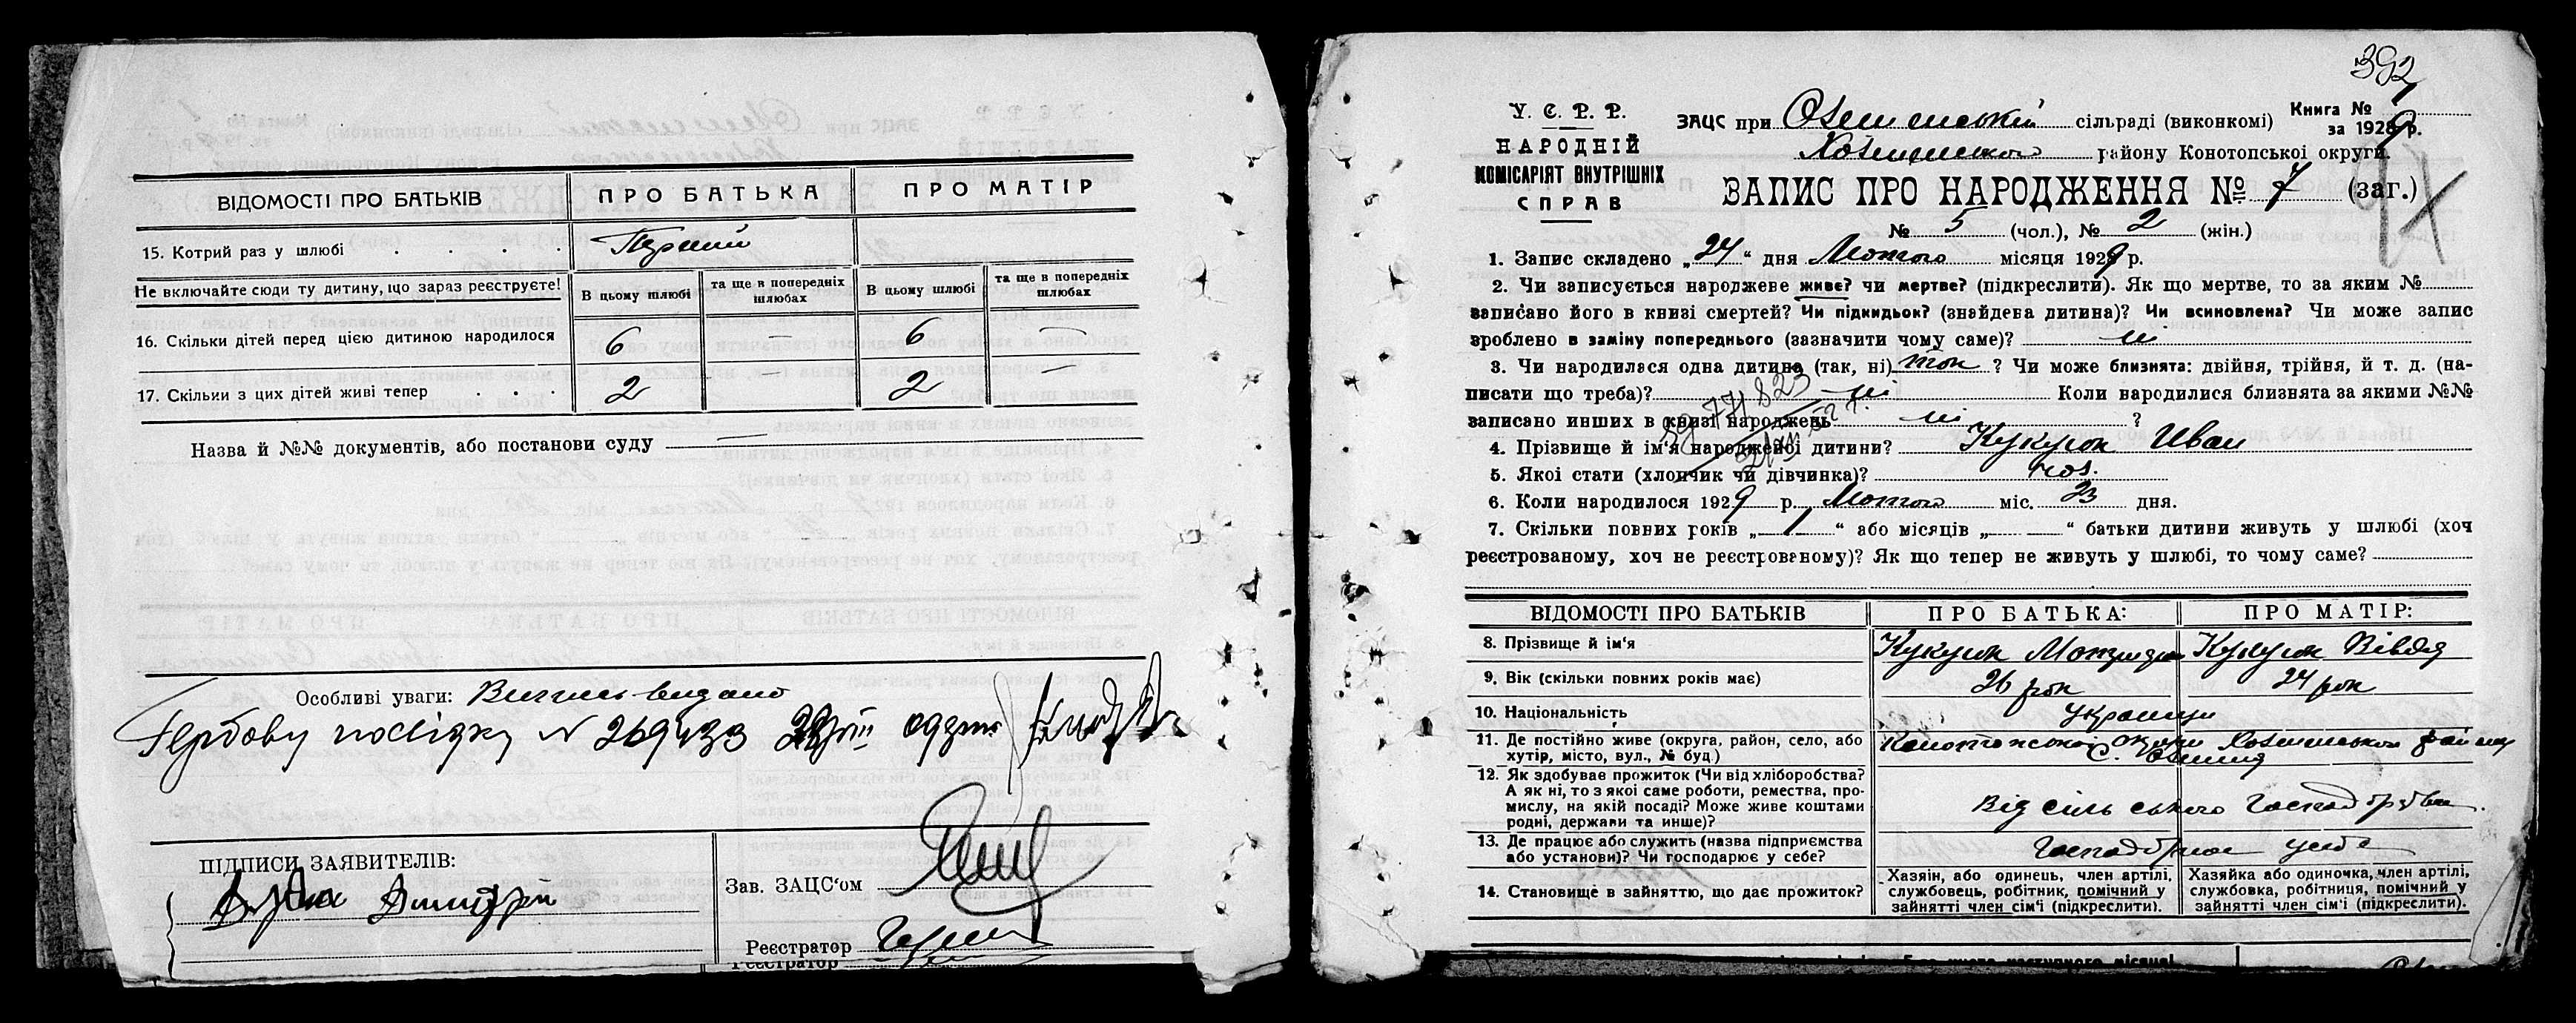 ВІДОМОСТІ ПРО БАТЬКІВ
ПРО БАТЬКА
ПРО МАТІР
15. Котрий раз у шлюбі . . . .
Перший
Не включайте сюди ту дитину, що зараз реєструєте!
В цьому шлюбі
та ще в попередніх шлюбах
В цьому шлюбі
та ще в попередніх шлюбах
16. Скільки дітей перед цією дитиною народилося
6 — 6 —
17. Скільки з цих дітей живі тепер . . .
2 — 2 —
Назва й №№ документів, або постанови суду —
Особливі уваги: Випись видано
Гербову посвідку N 269433
ПІДПИСИ ЗАЯВИТЕЛІВ:
Дмитрій
Зав. ЗАЦС'ом
Реєстратор
Реєстратор
392
У. С. Р. Р.
НАРОДНІЙ
КОМІСАРІЯТ ВНУТРІШНІХ
СПРАВ
ЗАЦС при сільраді (виконкомі)
Книга №
за 1929 р.
району Конотопської округи.
ЗАПИС ПРО НАРОДЖЕННЯ № 7 (заг.)
№ 5 (чол.), № 2 (жін.)
1. Запис складено „24“ дня Лютого місяця 1929 р.
2. Чи записується народжене живе? чи мертве? (підкреслити). Як що мертве, то за яким №
записано його в книзі смертей? Чи підкидьок? (знайдена дитина)? Чи всиновлена? Чи може запис
зроблено в заміну попереднього (зазначити чому саме)? ні
3. Чи народилася одна дитина (так, ні) так ? Чи може близнята: двійня, трійня, й т. д. (на-
писати що треба)? ні Коли народилися близнята за якими №№
записано инших в книзі народжень ні ?
4. Прізвище й ім'я народженої дитини? Кукуюк Иван
5. Якої стати (хлопчик чи дівчинка)? чол.
6. Коли народилося 1929 р. Лютого міс. 23 дня.
7. Скільки повних років „ 1 “ або місяців „ — “ батьки дитини живуть у шлюбі (хоч
реєстрованому, хоч не реєстрованому)? Як що тепер не живуть у шлюбі, то чому саме?
ВІДОМОСТІ ПРО БАТЬКІВ
ПРО БАТЬКА:
ПРО МАТІР:
8. Прізвище й ім'я
Вівдя
9. Вік (скільки повних років має)
26 рок
24 рок
10. Національність
Українци
11. Де постійно живе (округа, район, село, або
хутір, місто, вул., № буд.)
Конотопської округи району
с.
12. Як здобуває прожиток (Чи від хліборобства?
А як ні, то з якої саме роботи, ремества, про-
мислу, на якій посаді? Може живе коштами
родні, держави та инше)?
Від сільського Господарства
13. Де працює або служить (назва підприємства
або установи)? Чи господарює у себе?
Господарює у себе
14. Становище в зайняттю, що дає прожиток?
Хазяїн, або одинець, член артілі,
службовець, робітник, помічний у
зайнятті член сім'ї (підкреслити).
Хазяйка або одиночка, член артілі,
службовка, робітниця, помічний у
зайнятті член сім'ї (підкреслити).